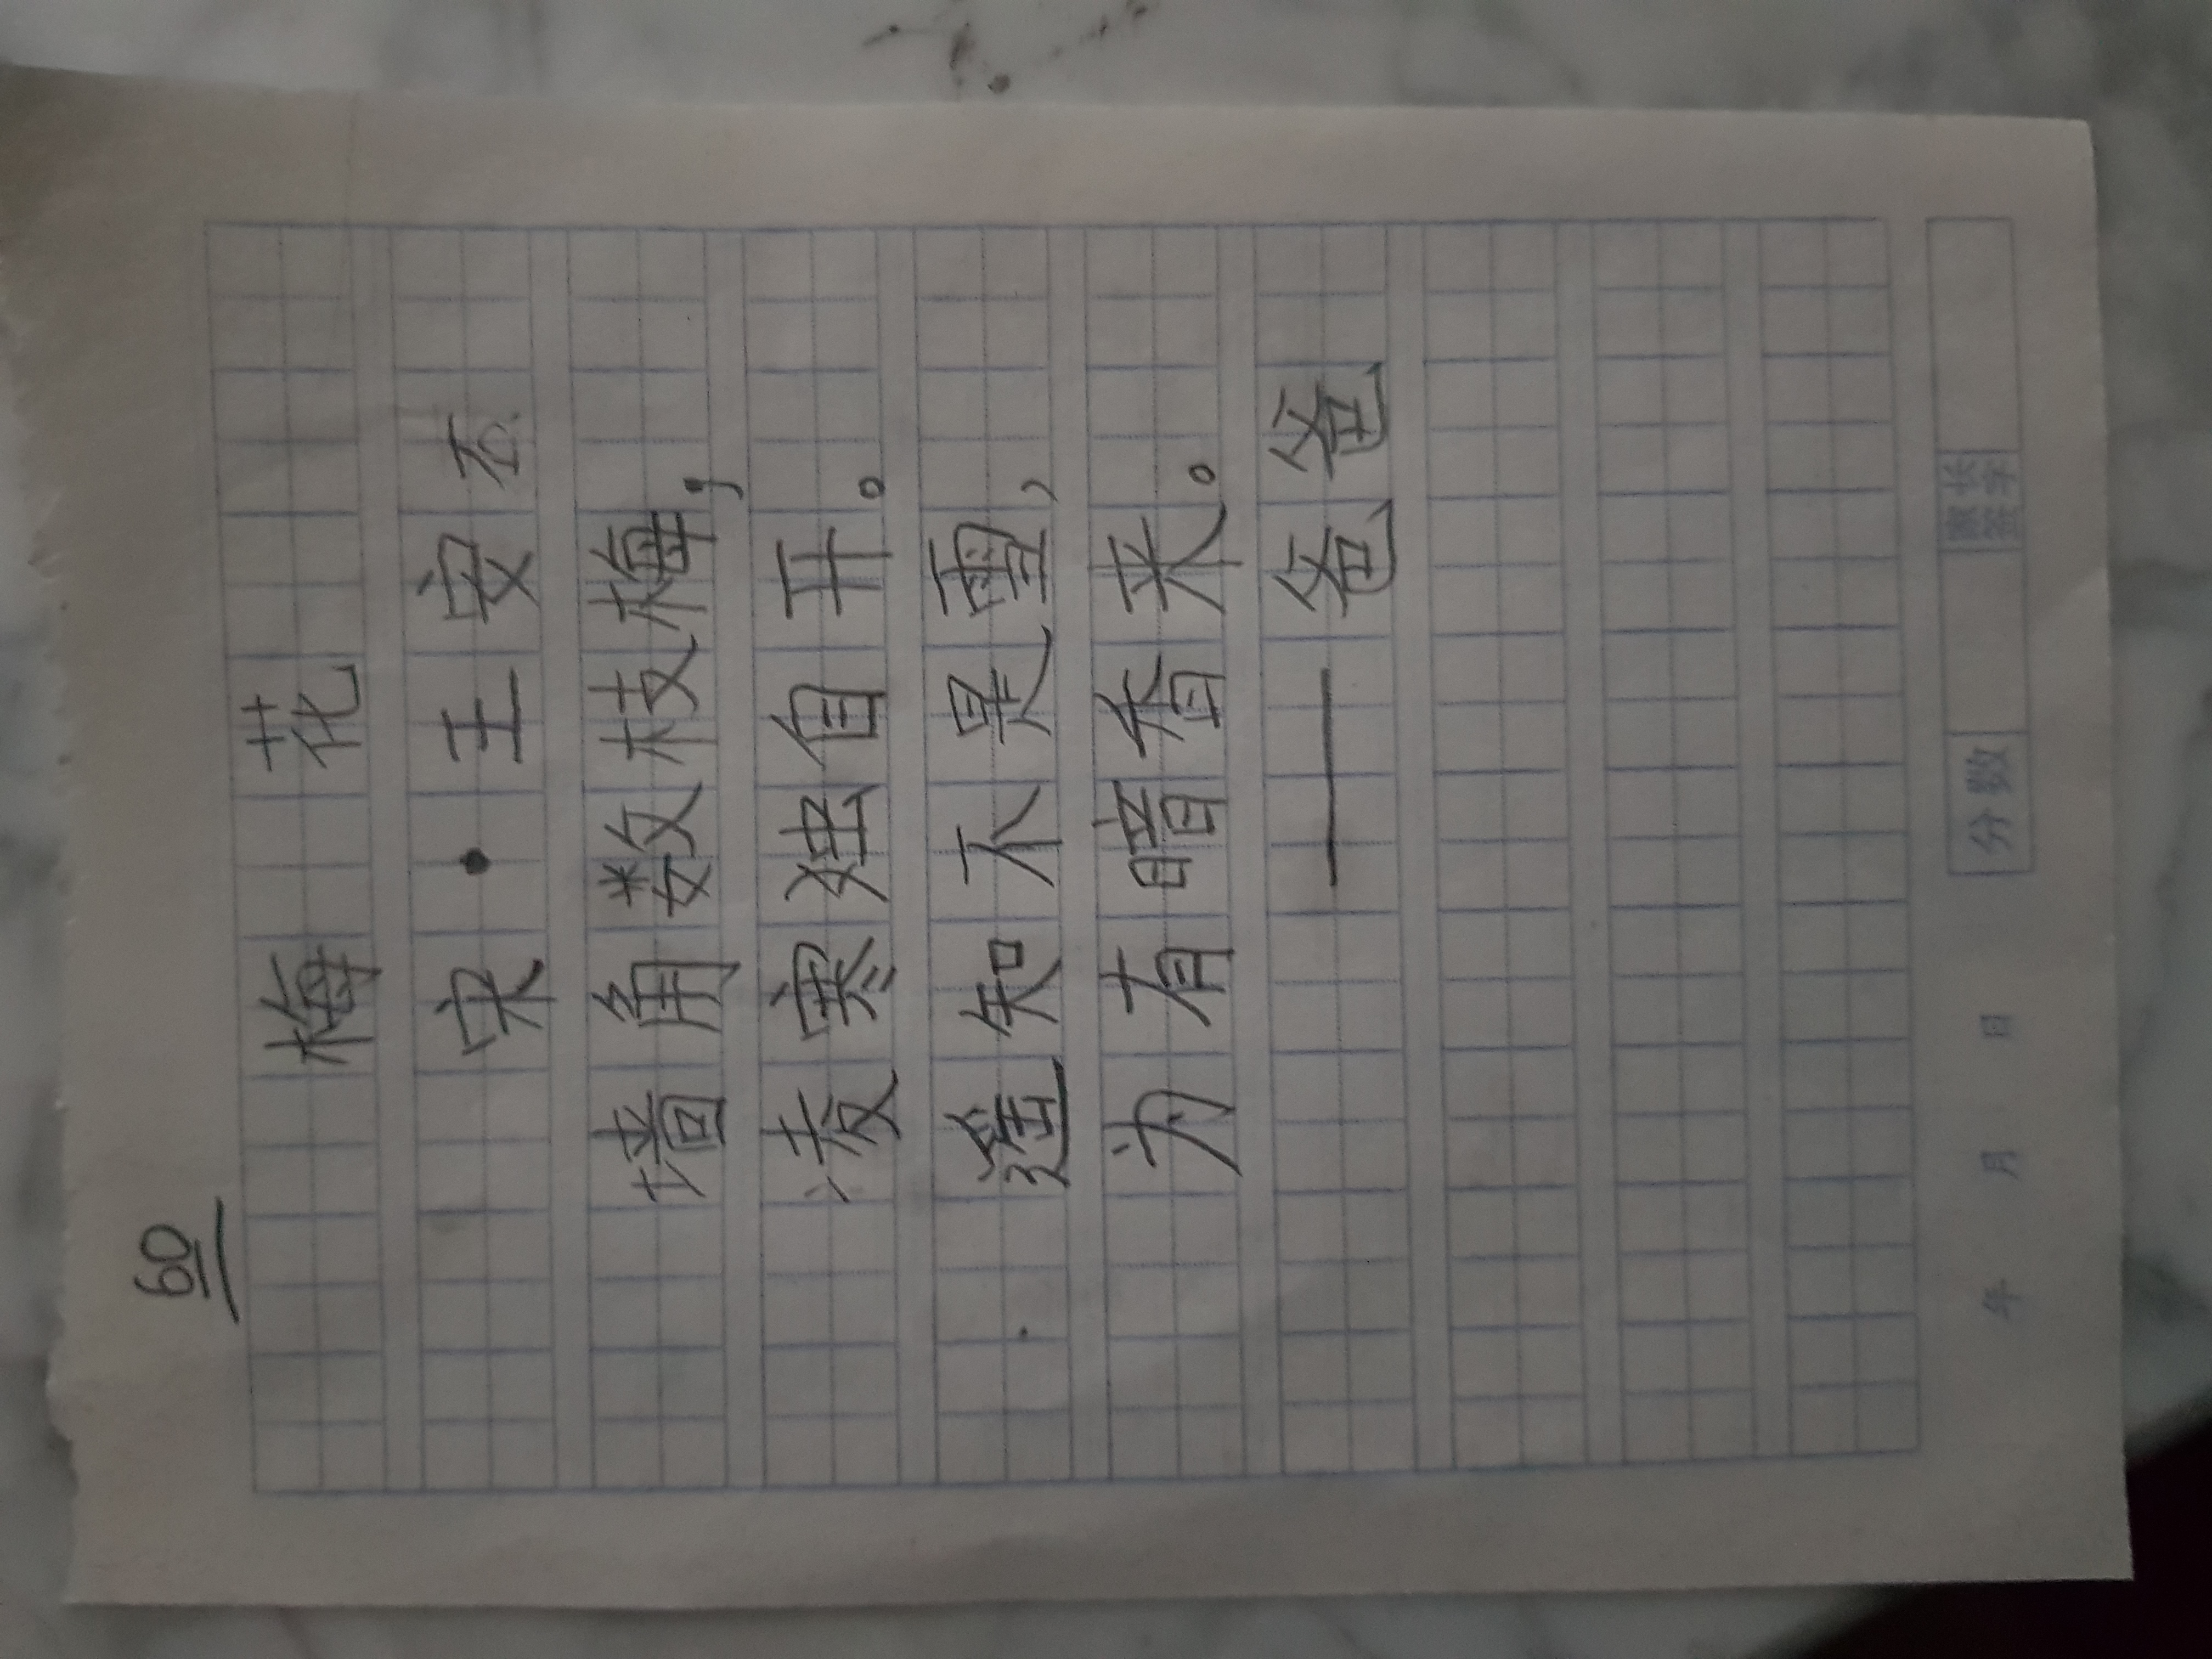 60
梅 花
宋·王安石
墙角数枝梅，
凌寒独自开。
遥知不是雪，
为有暗香来。
——爸爸
年 月 日 分数 家长签字